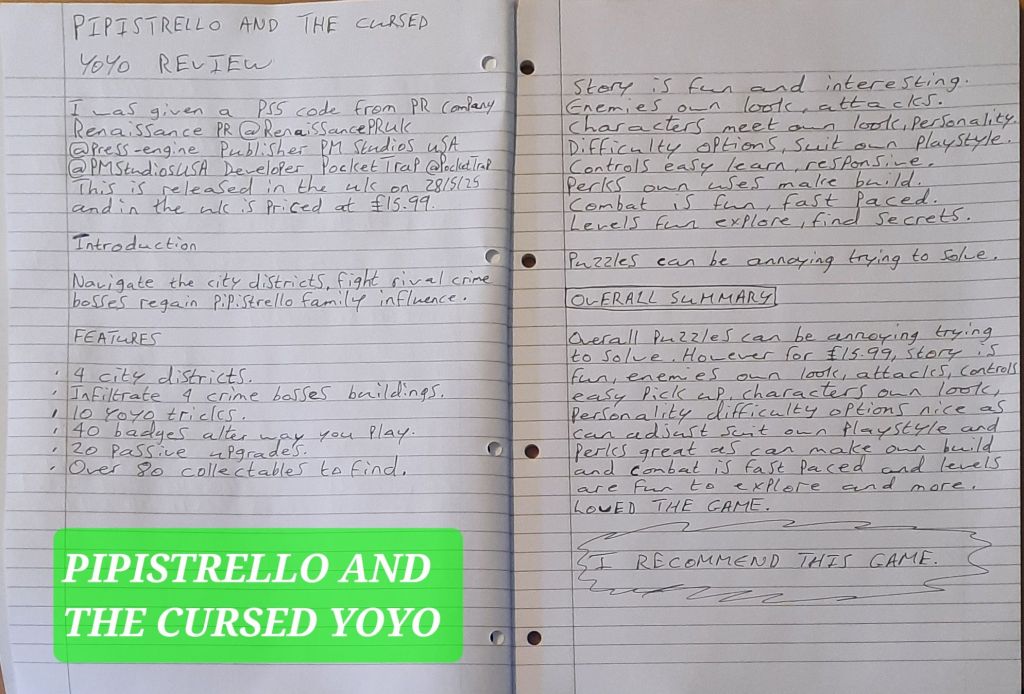 PIPISTRELLO AND THE CURSED
YOYO REVIEW
I was given a PS5 code from PR company
Renaissance PR @RenaissancePRuk
@Press-engine Publisher PM Studios USA
@PMStudiosUSA Developer Pocket Trap @PocketTrap
This is released in the uk on 28/5/25
and in the uk is priced at £15.99.
Introduction
Navigate the city districts, fight rival crime
bosses regain Pipistrello family influence.
FEATURES
· 4 city districts.
· Infiltrate 4 crime bosses buildings.
· 10 YOYO tricks.
· 40 badges alter way you play.
· 20 passive upgrades.
· Over 80 collectables to find.
PIPISTRELLO AND
THE CURSED YOYO
Story is fun and interesting.
Enemies own look, attacks.
Characters meet own look, personality.
Difficulty options, suit own playstyle.
Controls easy learn, responsive.
Perks own uses make build.
Combat is fun, fast paced.
Levels fun explore, find secrets.
Puzzles can be annoying trying to solve.
OVERALL SUMMARY
Overall puzzles can be annoying trying
to solve. However for £15.99, story is
fun, enemies own look, attacks, controls
easy pick up, characters own look,
personality difficulty options nice as
can adjust suit own playstyle and
perks great as can make own build
and combat is fast paced and levels
are fun to explore and more.
LOVED THE GAME.
I RECOMMEND THIS GAME.